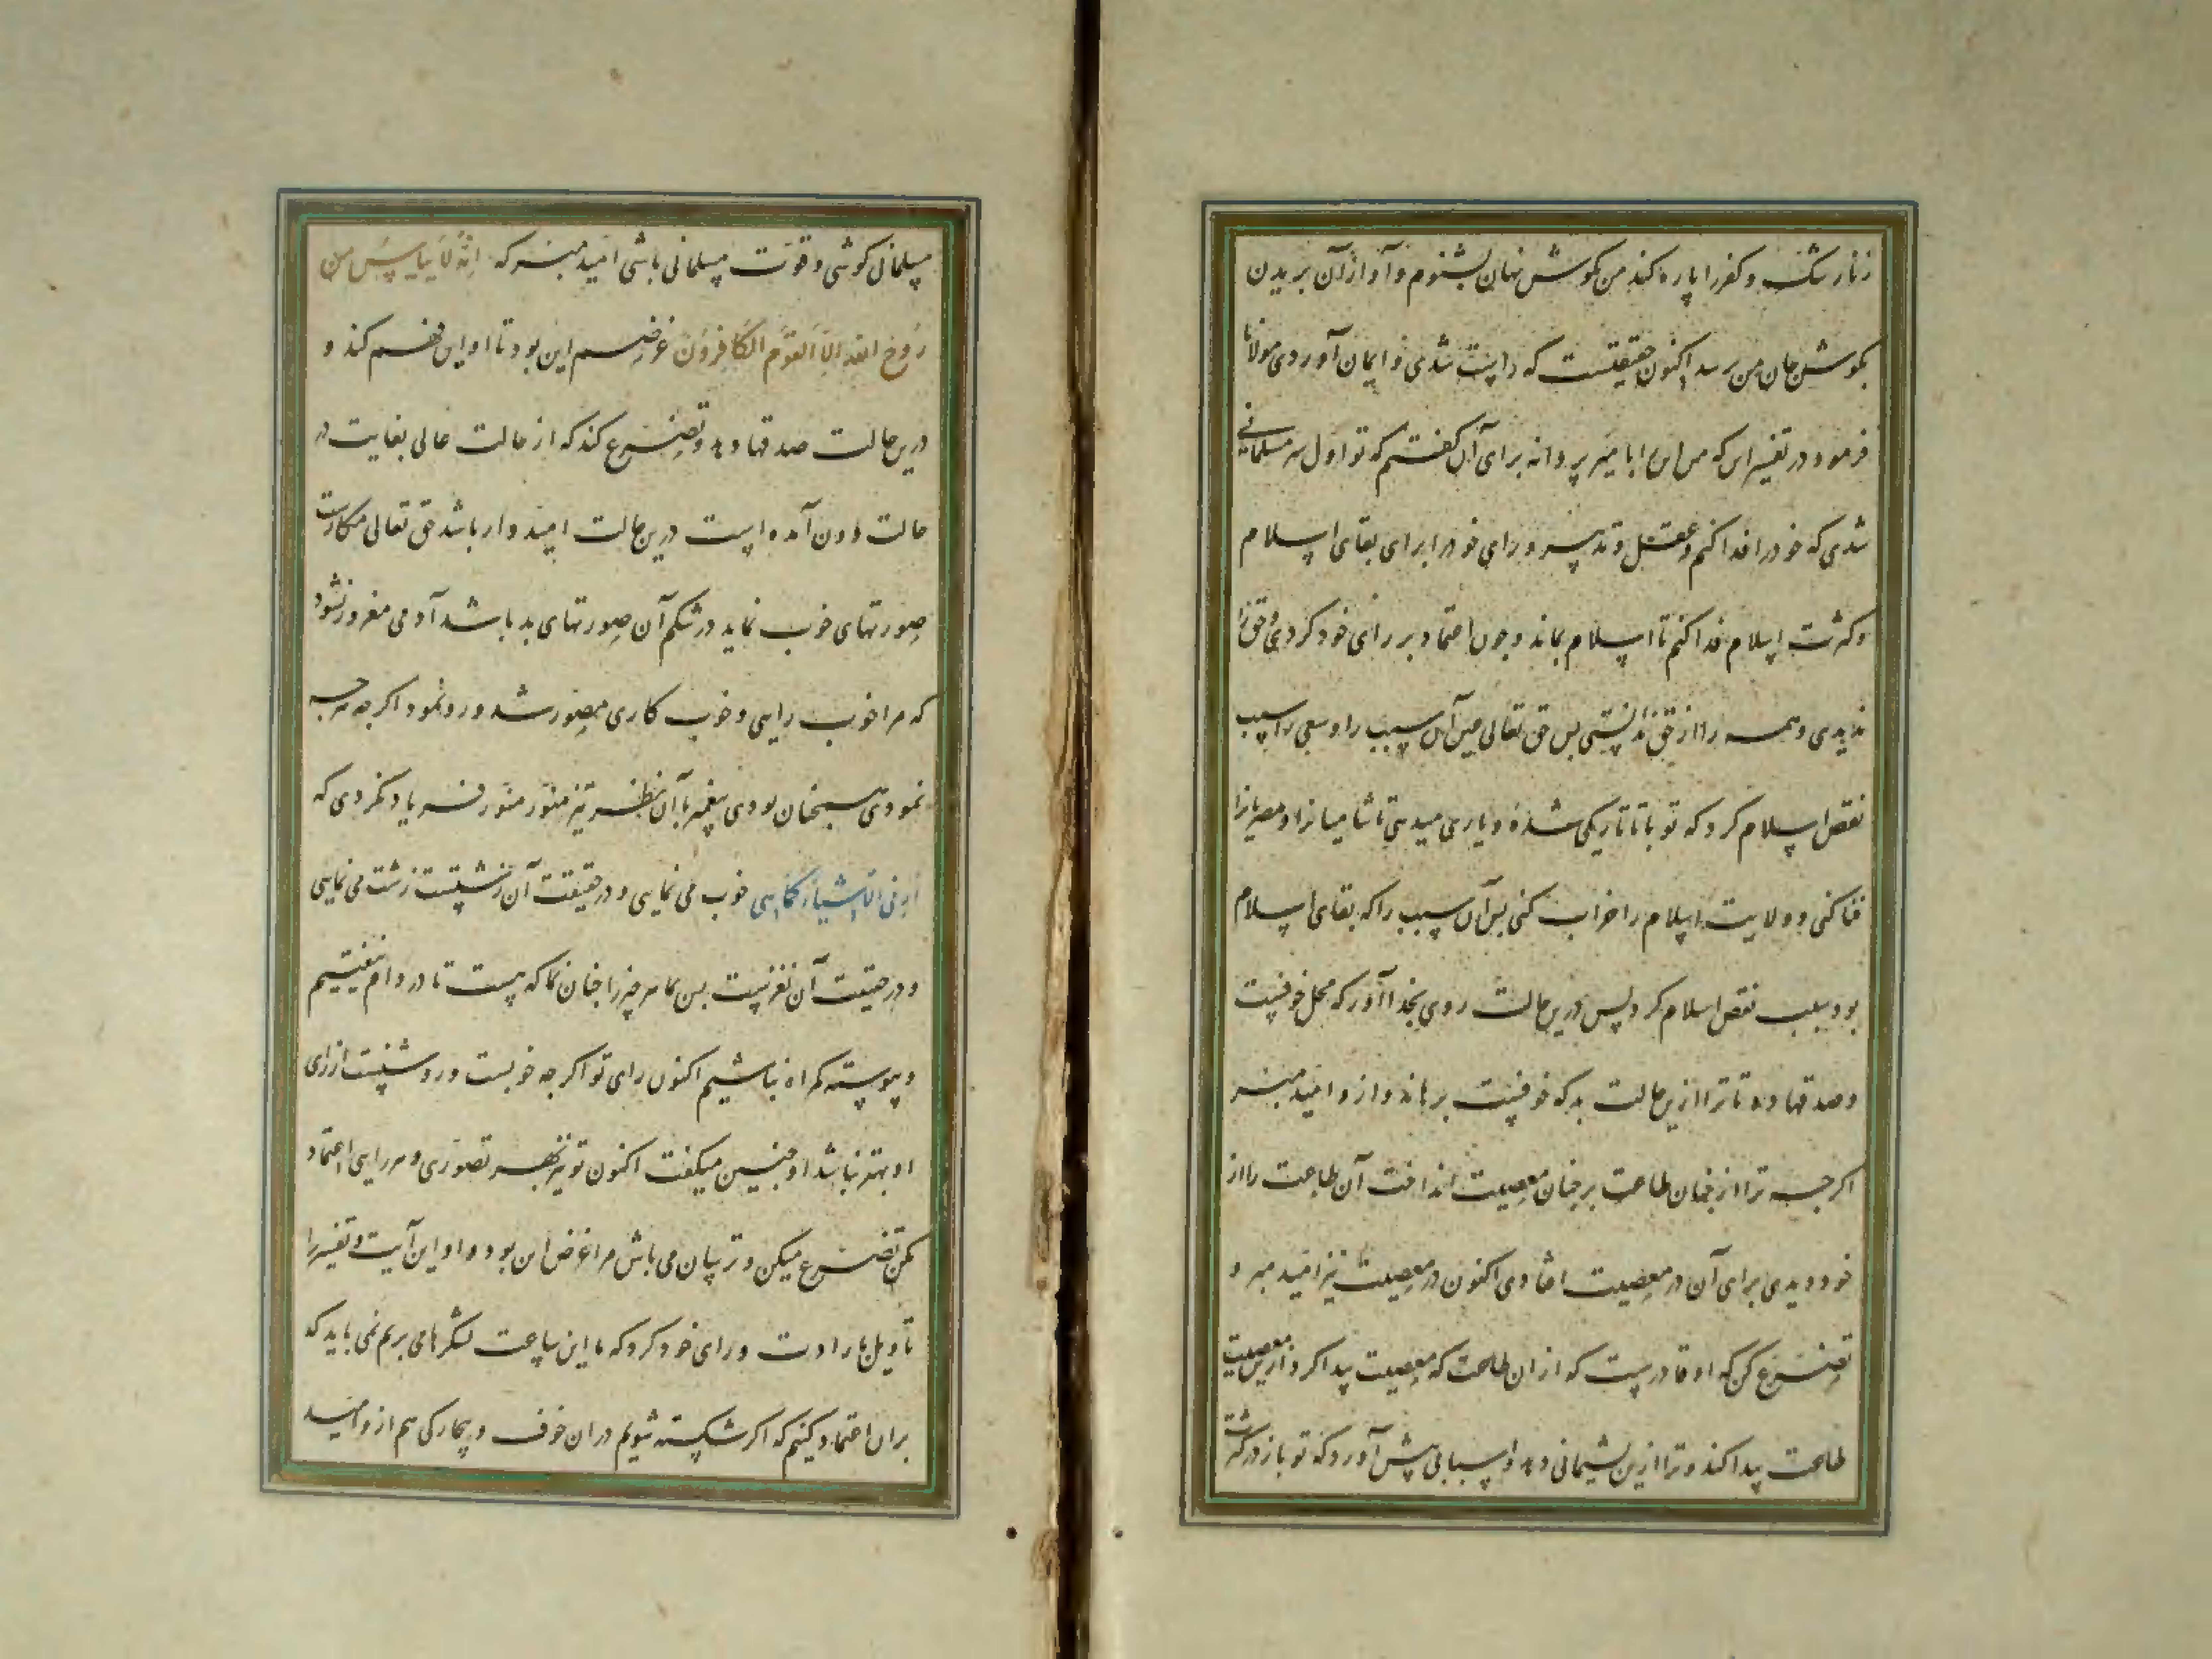 زنار شک و کفر را پاره کند من بگوش نهان بشنوم و آواز آن بریدن
بگوش جان من رسد اکنون حقیقتست که راست شدی و ایمان آوردی مولانا
فرمود در تفسیر این که من این را با میر پروانه برای آن گفتم که تو اول سر مسلمانی
شدی که خود را فدا کنم و عقل و تدبیر و رای خود را برای بقای اسلام
و کثرت اسلام فدا کنم تا اسلام بماند و چون اعتماد بر رای خود کردی و حق را
ندیدی و همه را از حق ندانستی پس حق تعالی عین آن سبب را و سعی را سبب
نقص اسلام کرد که تو با تاتار یکی شدهٔ و یاری میدهی تا شامیانرا و مصریانرا
فنا کنی و ولایت اسلام را خراب کنی پس آن سبب را که بقای اسلام
بود سبب نقص اسلام کرد پس درین حالت روی بخدا آور که محل خوفست
و صدقها ده تا ترا ازین حالت بد که خوفست برهاند و ازو امید مبر
اگرچه ترا از چنان طاعت بر چنان معصیت انداخت آن طاعت را از
خود دیدی برای آن در معصیت افتادی اکنون در معصیت نیز امید مبر و
تضرع کن که او قادرست که از ان طاعت که معصیت پیدا کرد ازین معصیت
طاعت پیدا کند و ترا ازین پشیمانی دهد و اسبابی پیش آورد که تو باز در کثرت
مسلمانی کوشی و قوت مسلمانی باشی امید مبر که انه لا ییاس من
روح الله الا القوم الکافرون غرضم این بود تا او این فهم کند و
درین حالت صدقها دهد و تضرع کند که از حالت عالی بغایت در
حالت دون آمده است درین حالت امیدوار باشد حق تعالی مکارست
صورتهای خوب نماید در شکم آن صورتهای بد باشد آدمی مغرور نشود
که مرا خوب رایی و خوب کاری مصور شد و رو نمود اگرچه هرچه
نمودی همچنان بودی پیغمبر با آن نظر تیز منور منور فریاد نکردی که
ارنی الاشیاء کماهی خوب می نمایی و در حقیقت آن زشتست زشت می نمایی
و در حقیقت آن نغزست پس بما هر چیز را چنان نما که هست تا در دام نیفتیم
و پیوسته گمراه نباشیم اکنون رای تو اگرچه خوبست و روشنست از رای
او بهتر نباشد او چنین میگفت اکنون تو نیز بهر تصوری و هر رایی اعتماد
مکن تضرع میکن و ترسان می باش مرا غرض این بود و او این آیت و تفسیر را
تأویل بارادت و رای خود کرد که ما این ساعت لشکرها می بریم نمی باید که
بران اعتماد کنیم که اگر شکسته شویم در ان خوف و بیچارگی هم ازو امید